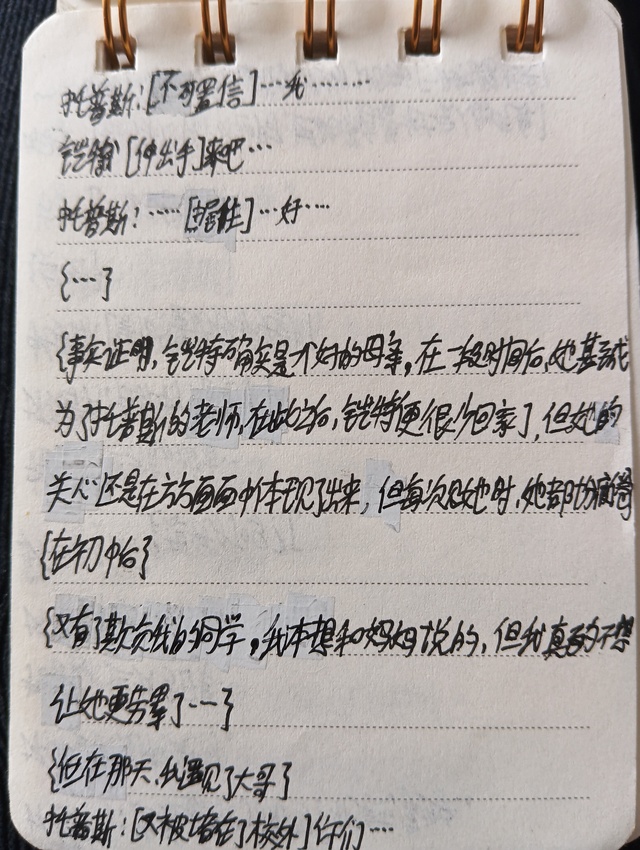 托普斯:[不可置信]…我………
铠特[伸出手]来吧…
托普斯:……[握住]…好…
{…}
{事实证明,铠特确实是个好的母亲,在一段时间后,她甚至成
为了托普斯的老师,在此之后,铠特便很少回家了,但她的
关心还是在方方面面中体现了出来,但每次见她时,她都
{在初中台}
{又有了欺负我的同学,我本想和妈妈说的,但我真的不想
让她更劳累了…}
{但在那天,我遇见了大哥}
托普斯:[又被堵在了校外]你们…